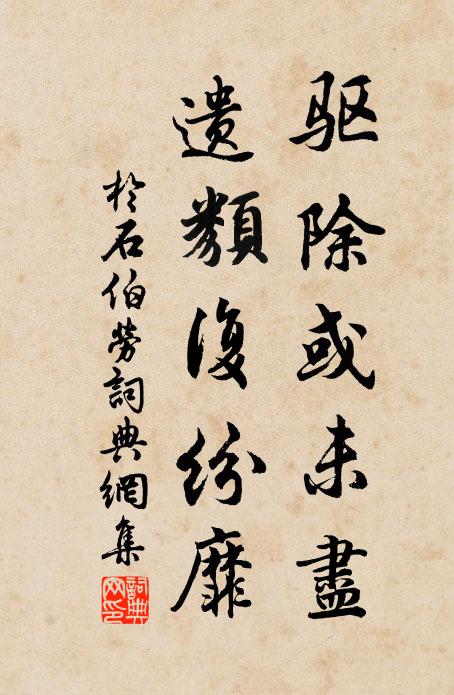 驱除或未盡
遺類復紛靡
於石伯勞詞典網集
詞典网印